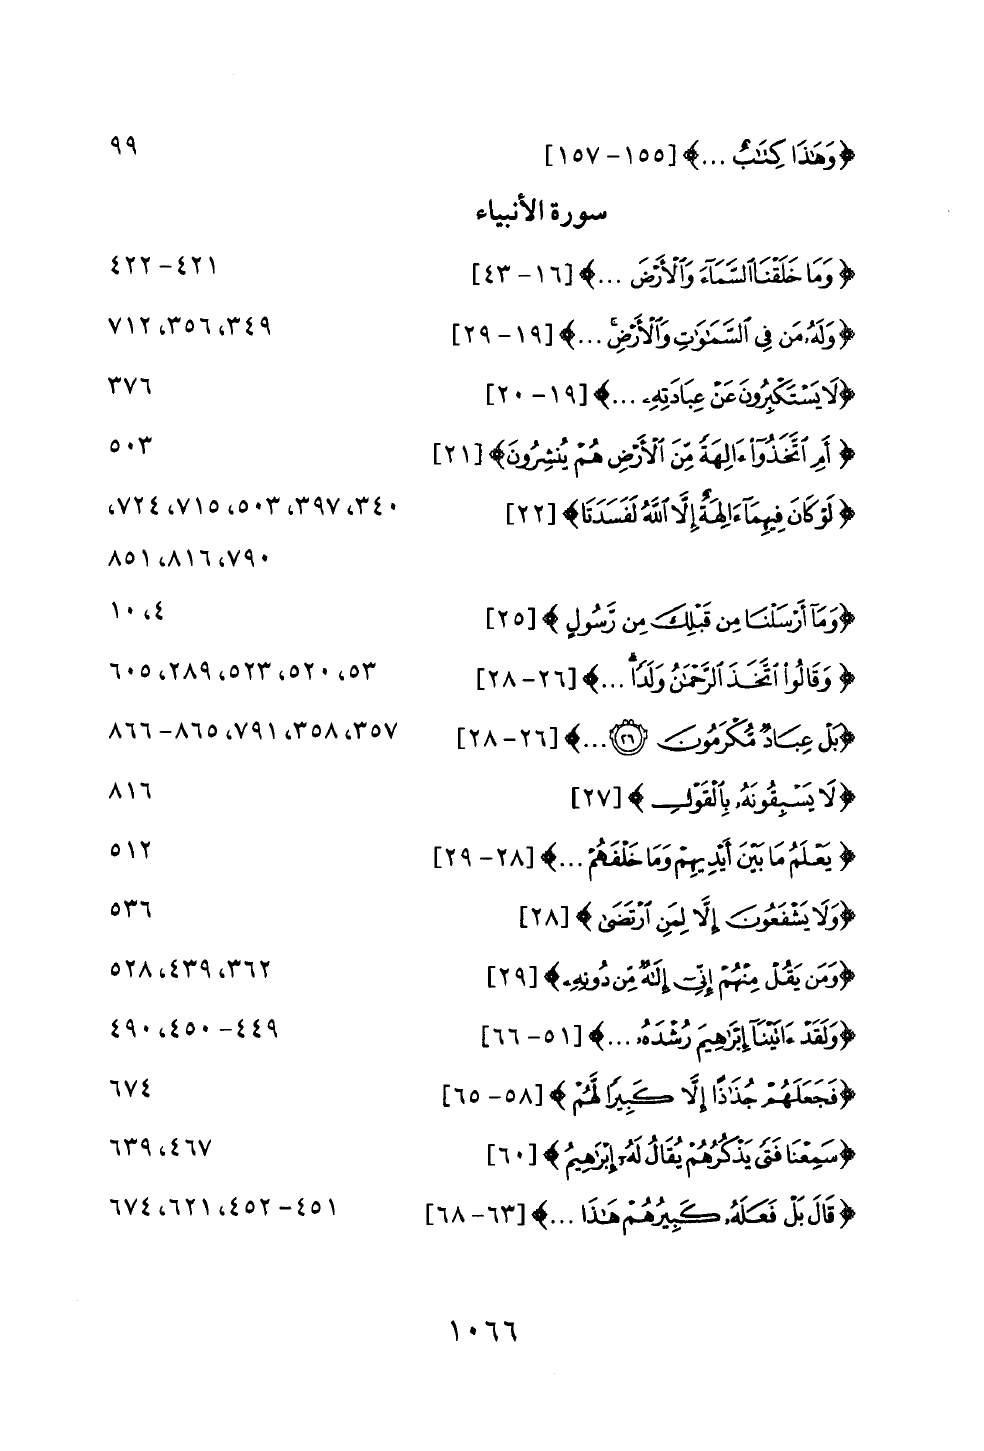 ﴿وَهَٰذَا كِتَٰبٌ ...﴾ [١٥٥ – ١٥٧] ٩٩
سورة الأنبياء
﴿وَمَا خَلَقْنَا ٱلسَّمَآءَ وَٱلْأَرْضَ ...﴾ [١٦ – ٤٣] ٤٢١ – ٤٢٢
﴿وَلَهُۥ مَن فِي ٱلسَّمَٰوَٰتِ وَٱلْأَرْضِۚ ...﴾ [١٩ – ٢٩] ٣٤٩، ٣٥٦، ٧١٢
﴿لَا يَسْتَكْبِرُونَ عَنْ عِبَادَتِهِۦ ...﴾ [١٩ – ٢٠] ٣٧٦
﴿أَمِ ٱتَّخَذُوٓا۟ ءَالِهَةً مِّنَ ٱلْأَرْضِ هُمْ يُنشِرُونَ﴾ [٢١] ٥٠٣
﴿لَوْ كَانَ فِيهِمَآ ءَالِهَةٌ إِلَّا ٱللَّهُ لَفَسَدَتَا﴾ [٢٢] ٣٤٠، ٣٩٧، ٥٠٣، ٧١٥، ٧٢٤،
٧٩٠، ٨١٦، ٨٥١
﴿وَمَآ أَرْسَلْنَا مِن قَبْلِكَ مِن رَّسُولٍ﴾ [٢٥] ٤، ١٠
﴿وَقَالُوا۟ ٱتَّخَذَ ٱلرَّحْمَٰنُ وَلَدًاۗ ...﴾ [٢٦ – ٢٨] ٥٣، ٥٢٠، ٥٢٣، ٢٨٩، ٦٠٥
﴿بَلْ عِبَادٌ مُّكْرَمُونَ ٢٦ ...﴾ [٢٦ – ٢٨] ٣٥٧، ٣٥٨، ٧٩١، ٨٦٥ – ٨٦٦
﴿لَا يَسْبِقُونَهُۥ بِٱلْقَوْلِ﴾ [٢٧] ٨١٦
﴿يَعْلَمُ مَا بَيْنَ أَيْدِيهِمْ وَمَا خَلْفَهُمْ ...﴾ [٢٨ – ٢٩] ٥١٢
﴿وَلَا يَشْفَعُونَ إِلَّا لِمَنِ ٱرْتَضَىٰ﴾ [٢٨] ٥٣٦
﴿وَمَن يَقُلْ مِنْهُمْ إِنِّيٓ إِلَٰهٌ مِّن دُونِهِۦ﴾ [٢٩] ٣٦٢، ٤٣٩، ٥٢٨
﴿وَلَقَدْ ءَاتَيْنَآ إِبْرَٰهِيمَ رُشْدَهُۥ ...﴾ [٥١ – ٦٦] ٤٤٩ – ٤٥٠، ٤٩٠
﴿فَجَعَلَهُمْ جُذَٰذًا إِلَّا كَبِيرًا لَّهُمْ﴾ [٥٨ – ٦٥] ٦٧٤
﴿سَمِعْنَا فَتًى يَذْكُرُهُمْ يُقَالُ لَهُۥٓ إِبْرَٰهِيمُ﴾ [٦٠] ٤٦٧، ٦٣٩
﴿قَالَ بَلْ فَعَلَهُۥ كَبِيرُهُمْ هَٰذَا ...﴾ [٦٣ – ٦٨] ٤٥١ – ٤٥٢، ٦٢١، ٦٧٤
١٠٦٦